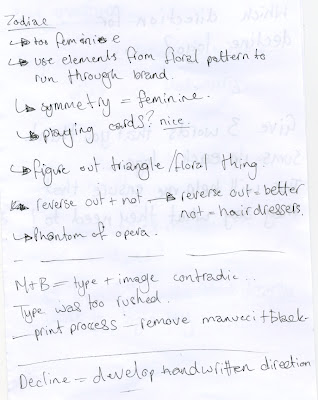 Zodiac
↳ too feminine
↳ use elements from floral pattern to
run through brand.
↳ symmetry = feminine.
↳ playing cards? nice.
↳ figure out triangle/floral thing
↳ reverse out + not → reverse out = better
not = hairdressers.
↳ Phantom of opera.
M+B = type + image contradic..
Type was too rushed.
— print process — remove manucci + black
Decline = develop handwritten direction